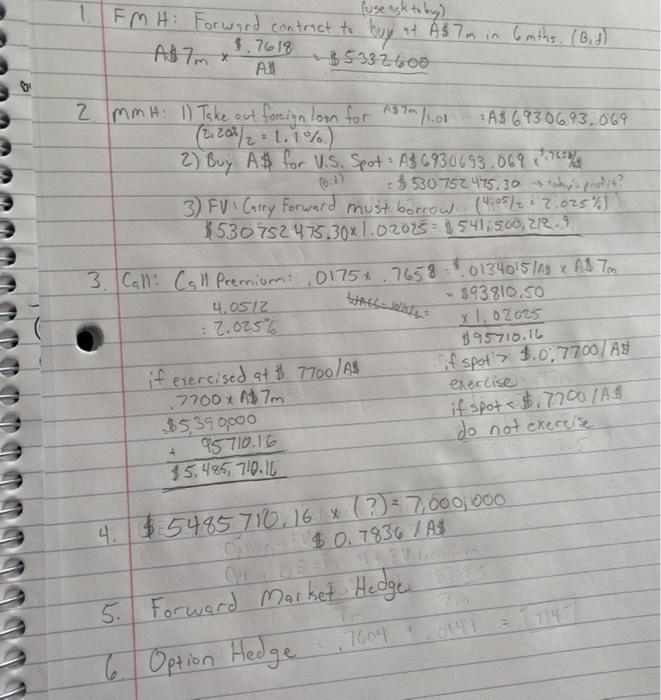 (use ask to buy)
1. FMH: Forward contract to buy at A$7m in 6mths. (Bid)
A$7m × $.7618/A$ = $5332600
2 MMH: 1) Take out foreign loan for A$7m/1.01 = A$6930693.069
(2.20%/2 = 1.1%)
2) Buy A$ for U.S. Spot: A$6930693.069 × $.7658/A$
(Bid) = $530752475.30 → today's profit?
3) FV: Carry Forward must borrow (4.05/2 = 2.025%)
$530752475.30×1.02025 = $541,500,212.9
3. Call: Call Premium: .0175 × .7658 = $.0134015/A$ × A$7m
4.05/2
= 2.025%
= $93810.50
× 1.02025
$95710.16
if exercised at $ 7700/A$
.7700 × A$7m
$5,390,000
+ 95710.16
$5,485,710.16
if spot > $.0.7700/A$
exercise
if spot < $.7700/A$
do not exercise
4. $5485710.16 × (?) = 7,000,000
$0.7836/A$
5. Forward Market Hedge
6. Option Hedge